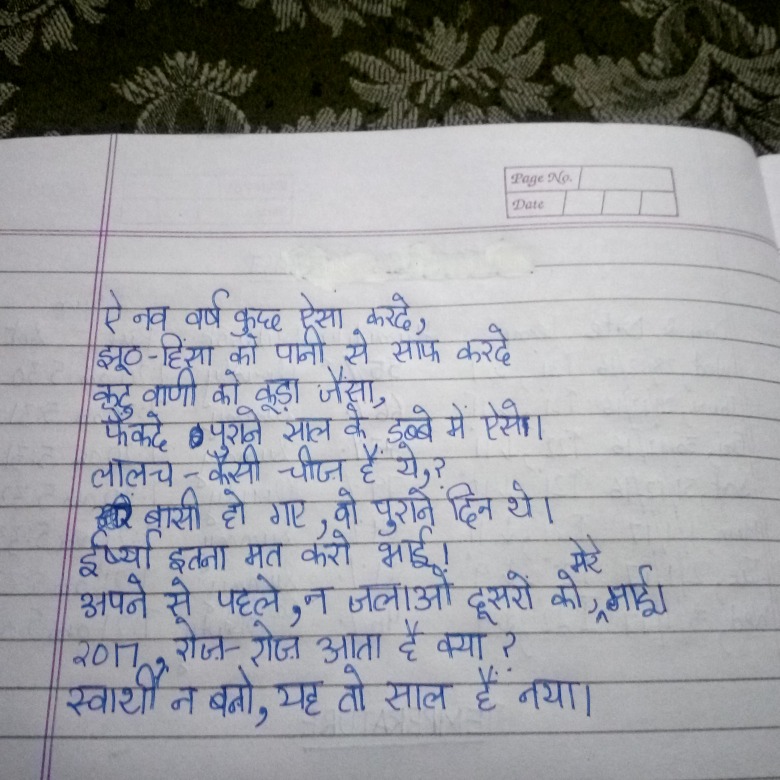 Page No.
Date
ऐ नव वर्ष कुछ ऐसा करदे,
झूठ-हिंसा को पानी से साफ करदे
कटु वाणी को कूड़ा जैसा,
फेंकदे पुराने साल के डब्बे में ऐसे।
लालच - कैसी चीज़ है ये,?
बासी हो गए, वो पुराने दिन थे।
ईर्ष्या इतना मत करो भाई!
अपने से पहले, न जलाओं दूसरों को, मेरे भाई।
2017, रोज़-रोज़ आता है क्या?
स्वार्थी न बनो, यह तो साल है नया।